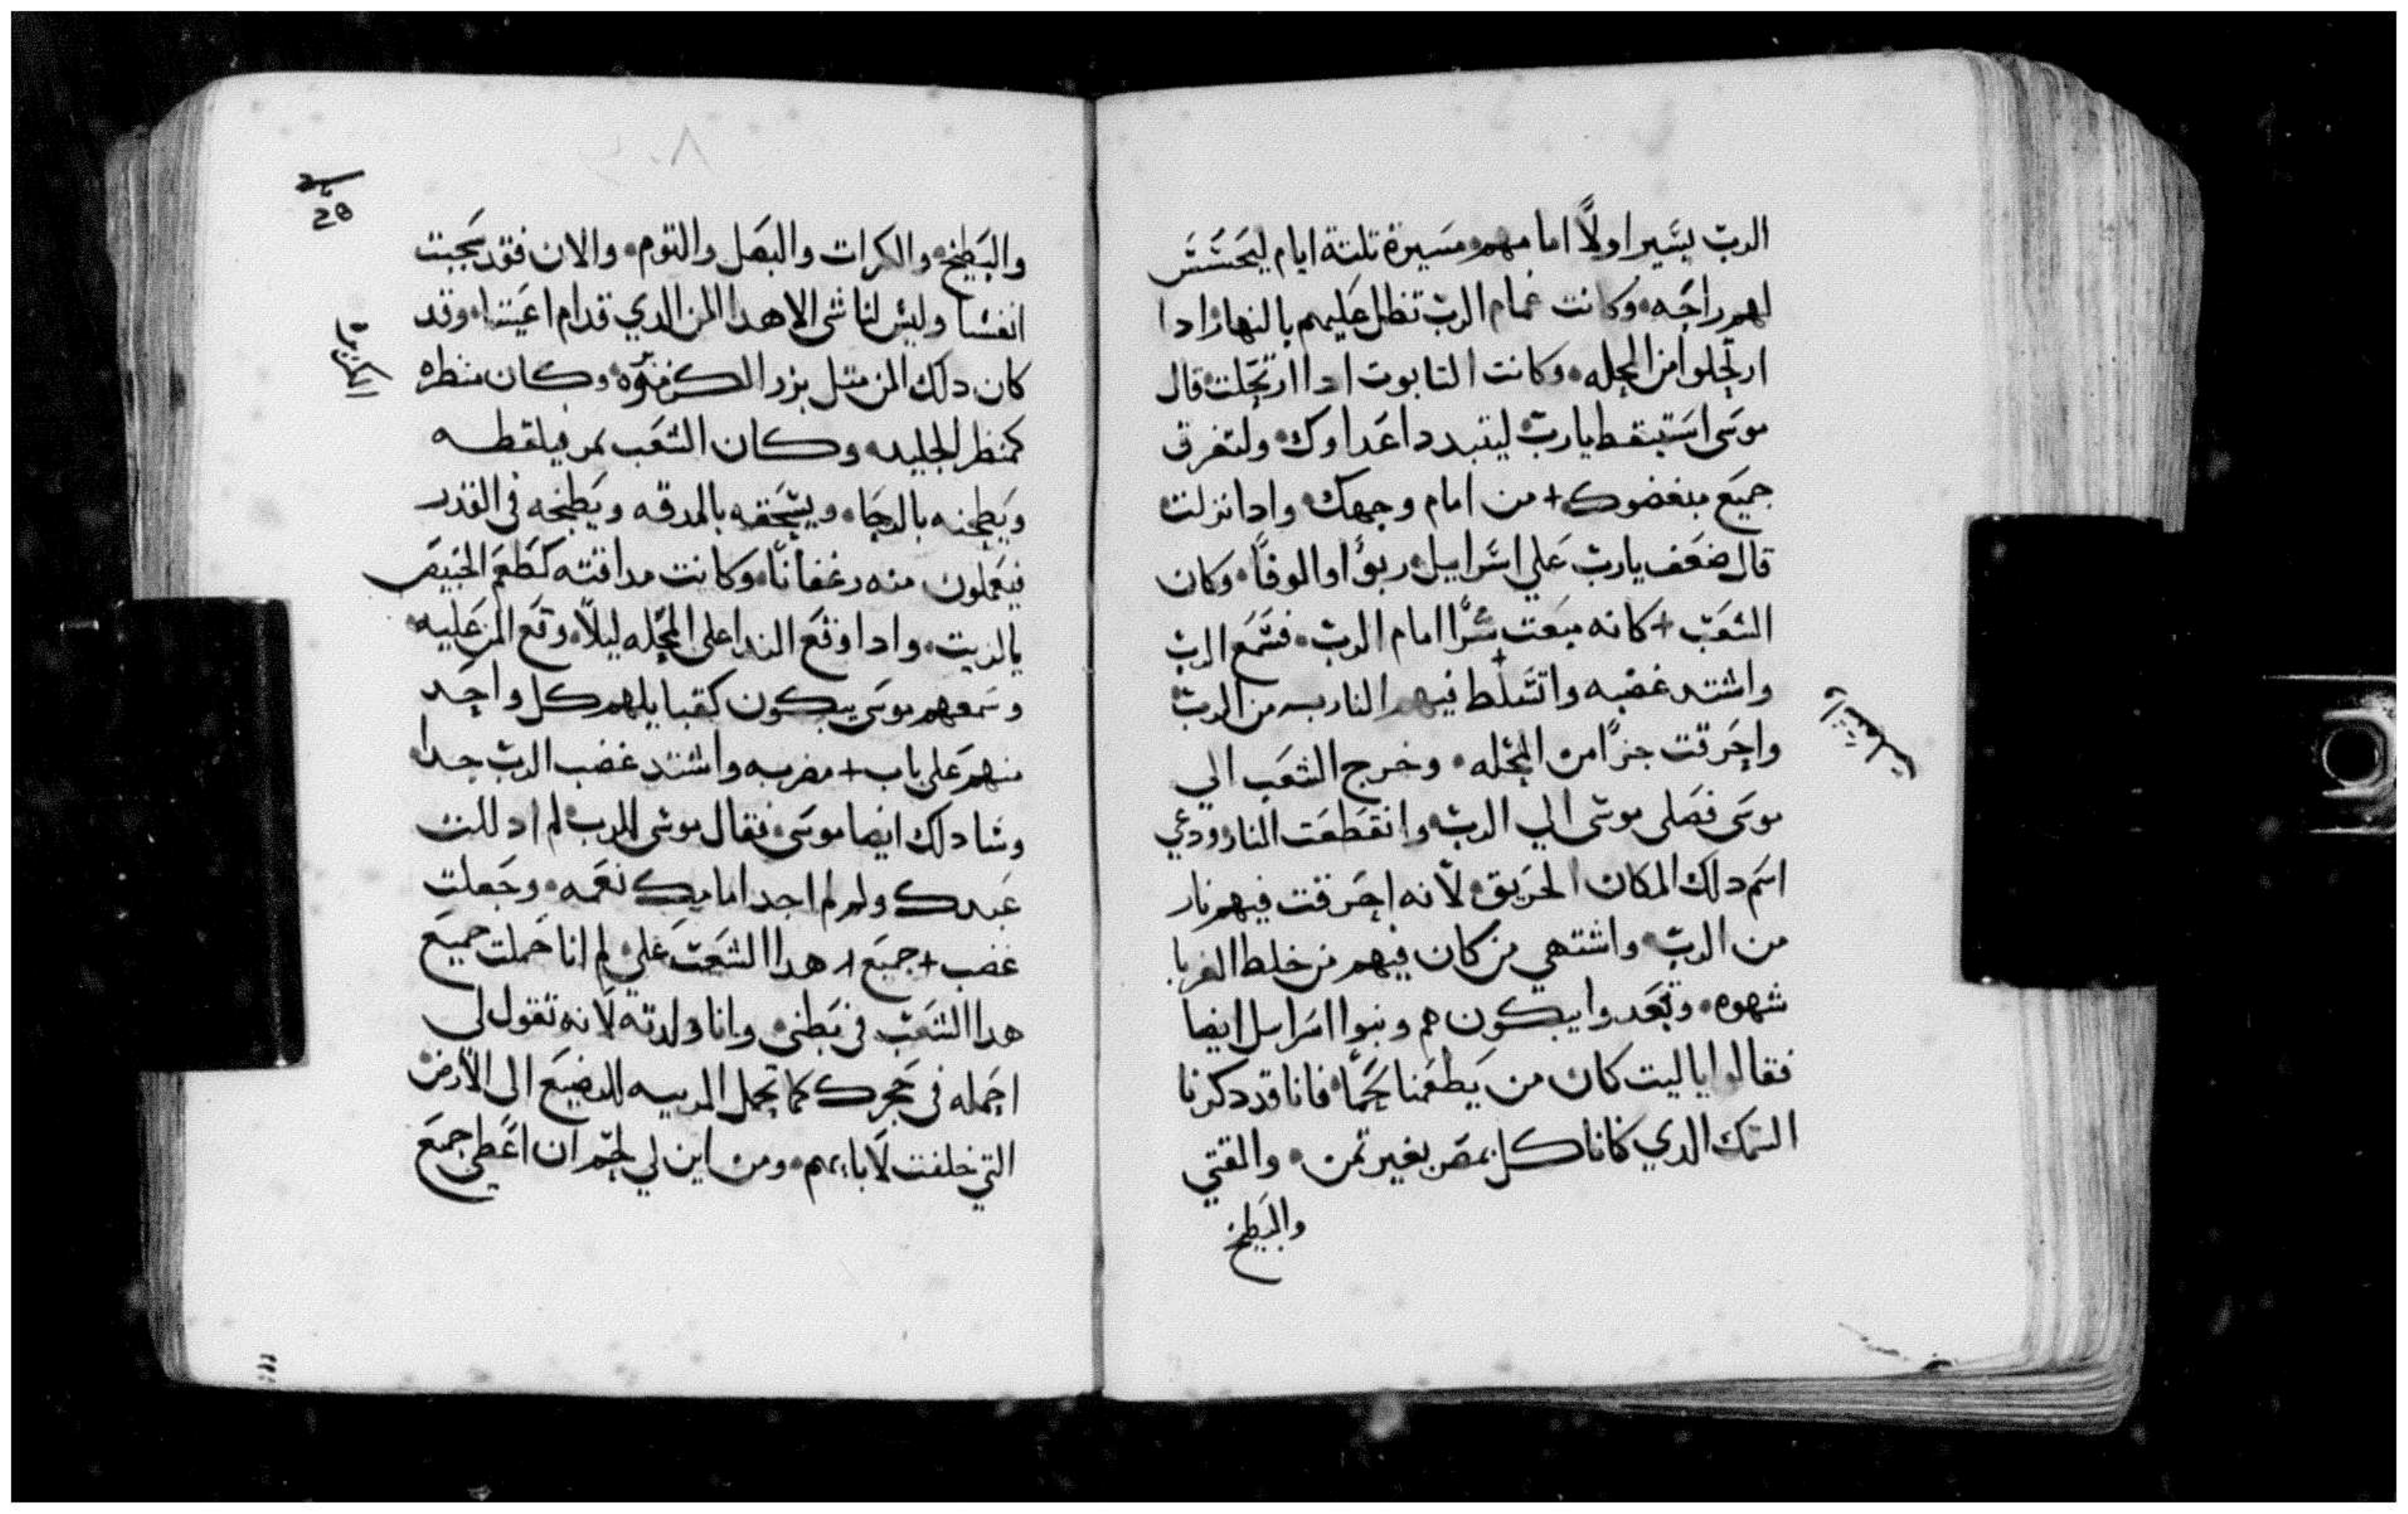 الرب يسير اولاً امامهم مسيرة تلتة ايام ليحسس
لهم راحه وكانت غمام الرب تظل عليهم بالنهار ادا
ارتحلوا من المحله وكانت التابوت ادا ارتحلت قال
موسى استيقظ يارب ليتبدد اعداوك ولتغرق
جميع مبغضوك + من امام وجهك وادا نزلت
قال ضعف يارب علي اسراييل ربوًا والوفًا وكان
الشعب + كانه مبعت شرًا امام الرب فسمع الرب
واشتد غضبه واتسلط فيهم النار به من الرب
واحرقت جزًا من المحله وخرج الشعب الي
موسى فصلى موسى الي الرب وانقطعت النار ودعي
اسم دلك المكان الحريق لانه احرقت فيهم نار
من الرب واشتهي من كان فيهم من خلط الغربا
شهوه وقعدوا يبكون هم وبنوا اسرايل ايضا
فقالوا يا ليت كان من يطعمنا لحمًا فانا قد دكرنا
السمك الدي كانا كل بمصر بغير تمن والقتي
والبطيخ
والبطيخ والكرات والبصل والتوم والان فقد عجبت
انفسنا وليس لنا شى الا هدا المن الدي قدام اعيننا وقد
كان دلك المن متل بزر الكزبره وكان منظره
كمنظر الجليد وكان الشعب يمر فيلقطه
ويطحنه بالرحا ويسحقه بالمدقه ويطبخه في القدر
فيعملون منه رغفانًا وكانت مداقته كطعم الخبيص
بالزيت وادا وقع الندا على المحله ليلاً وقع المن عليه
وسمعهم موسى يبكون كقبايلهم كل واحد
منهم على باب + مضربه واشتد غضب الرب جدا
وشا دلك ايضا موسى فقال موسى للرب لم ادللت
عبدك ولم لم اجد امامك نعمه وجعلت
غضب + جميع هدا الشعب علي لم انا حملت جميع
هدا الشعب في بطني وانا ولدته لانه تقول لي
احمله في حجرك كما تحمل المربيه الرضيع الى الارض
التي حلفت لابايهم ومن اين لي لحم ان اعطي جميع